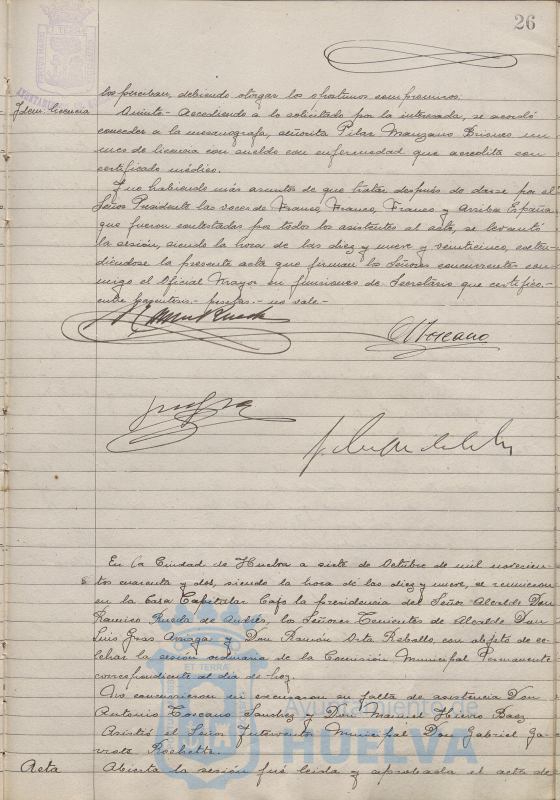 26
los perciban, debiendo otorgar los oportunos compromisos.
Idem licencia Quinto.- Accediendo a lo solicitado por la interesada, se acordó
conceder a la mecanógrafa, señorita Pilar Manzano Briones un
mes de licencia con sueldo con enfermedad que acredita con
certificado médico.
Y no habiendo más asuntos de que tratar después de darse por el
Señor Presidente las voces de Franco, Franco, Franco y Arriba España,
que fueron contestadas por todos los asistentes al acto, se levantó
la sesión, siendo la hora de las diez y nueve y veinticinco, exten-
diéndose la presente acta que firman los Señores concurrentes con-
migo el Oficial Mayor en funciones de Secretario que certifico.-
entre paréntesis.- pesetas.- no vale.-
En la Ciudad de Huelva a siete de Octubre de mil novecien-
tos cuarenta y dos, siendo la hora de las diez y nueve, se reunieron
en la Casa Capitular bajo la presidencia del Señor Alcalde Don
Ramiro Rueda de Andrés, los Señores Tenientes de Alcalde Don
Luis Gras Arriaga y Don Ramón Orta Rebollo, con objeto de ce-
lebrar la sesión ordinaria de la Comisión Municipal Permanente
correspondiente al día de hoy.
No concurrieron ni excusaron su falta de asistencia Don
Antonio Toscano Sanchez y Don Manuel Hierro Baez
Asistió el Señor Interventor Municipal Don Gabriel Ga-
vista Rochette.
Acta Abierta la sesión fué leida y aprobada el acta de
Ayuntamiento de
HUELVA